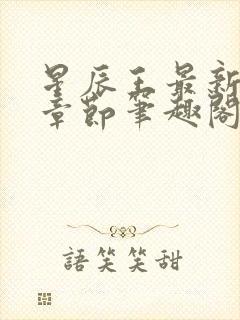 星辰王最新
章節筆趣閣
語笑笑甜